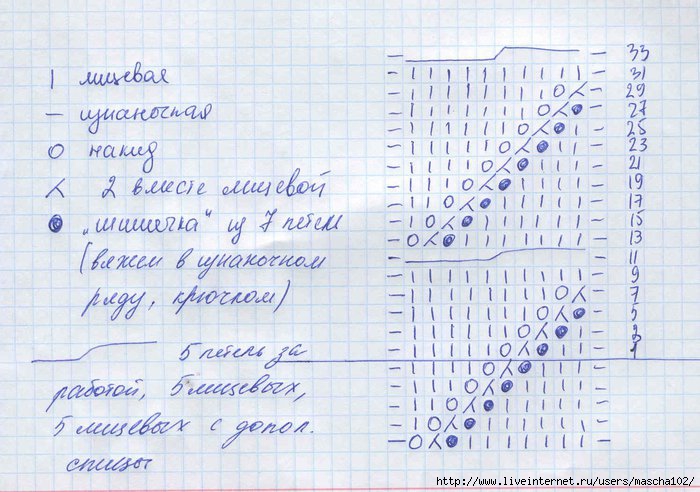 | лицевая
— изнаночная
O накид
⋌ 2 вместе лицевой
● „шишечка“ из 7 петель
(вяжем в изнаночном
ряду, крючком)
5 петель за
работой, 5 лицевых,
5 лицевых с допол.
спицы
33
31
29
27
25
23
21
19
17
15
13
11
9
7
5
3
1
http://www.liveinternet.ru/users/mascha102/